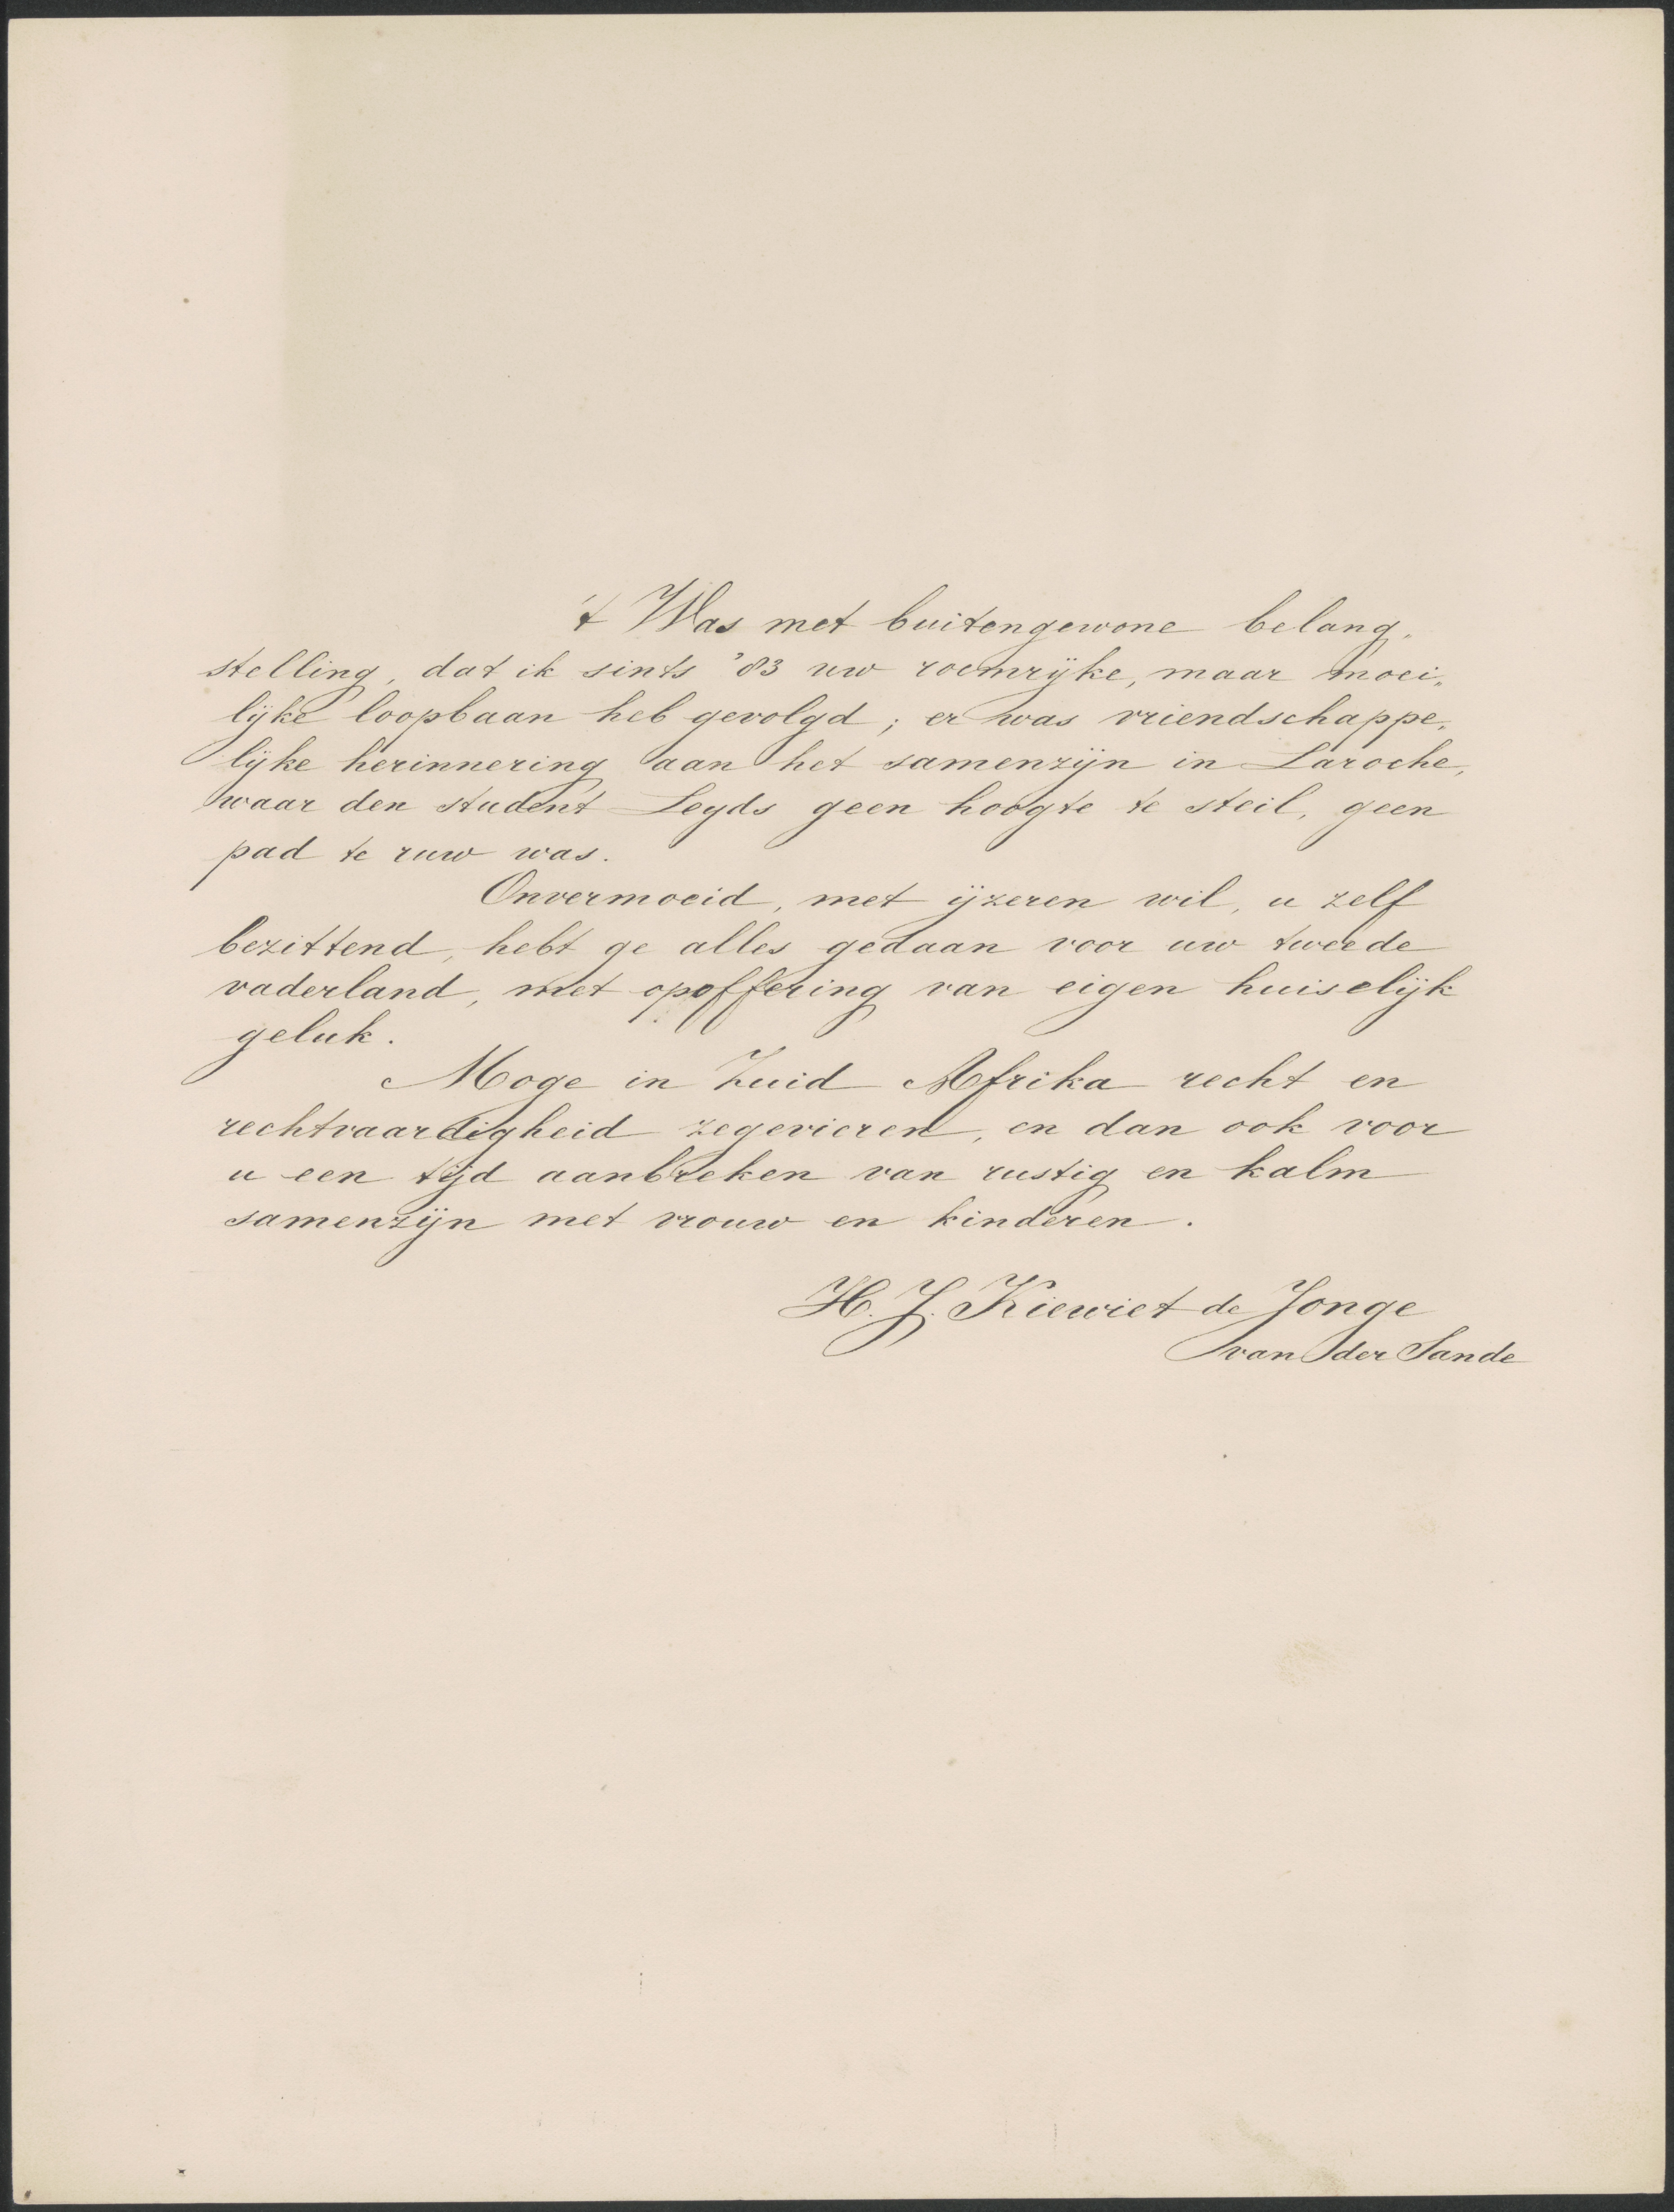 't Was met buitengewone belang„
stelling, dat ik sints '83 uw roemrijke, maar moei„
lijke loopbaan heb gevolgd; er was vriendschappe„
lijke herinnering aan het samenzijn in Laroche,
waar den student Leyds geen hoogte te steil, geen
pad te ruw was.
Onvermoeid, met ijzeren wil, u zelf
bezittend, hebt ge alles gedaan voor uw tweede
vaderland, met opoffering van eigen huiselijk
geluk.
Moge in Zuid Afrika recht en
rechtvaardigheid zegevieren, en dan ook voor
u een tijd aanbreken van rustig en kalm
samenzijn met vrouw en kinderen.
H. J. Kiewiet de Jonge
van der Sande